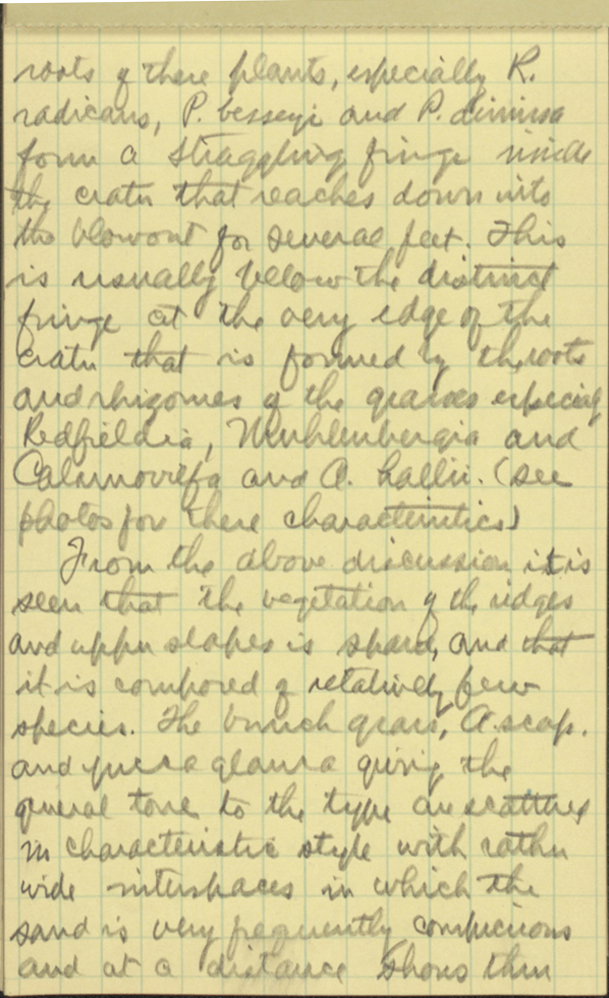 roots of these plants, especially R.
radicans, P. besseyi and P. dimissa
form a straggling fringe inside
the crater that reaches down into
the blowout for several feet. This
is usually below the distinct
fringe at the very edge of the
crater that is formed by the roots
and rhizomes of the grasses especially
Redfieldia, Muhlenbergia and
Calamovilfa and A. hallii. (see
photos for these characteristics)
From the above discussion it is
seen that the vegetation of the ridges
and upper slopes is sparse, and that
it is composed of relatively few
species. The bunch grass, A. scop.
and yucca glauca giving the
general tone to the type are scattered
in characteristic style with rather
wide interspaces in which the
sand is very frequently conspicuous
and at a distance shows thru